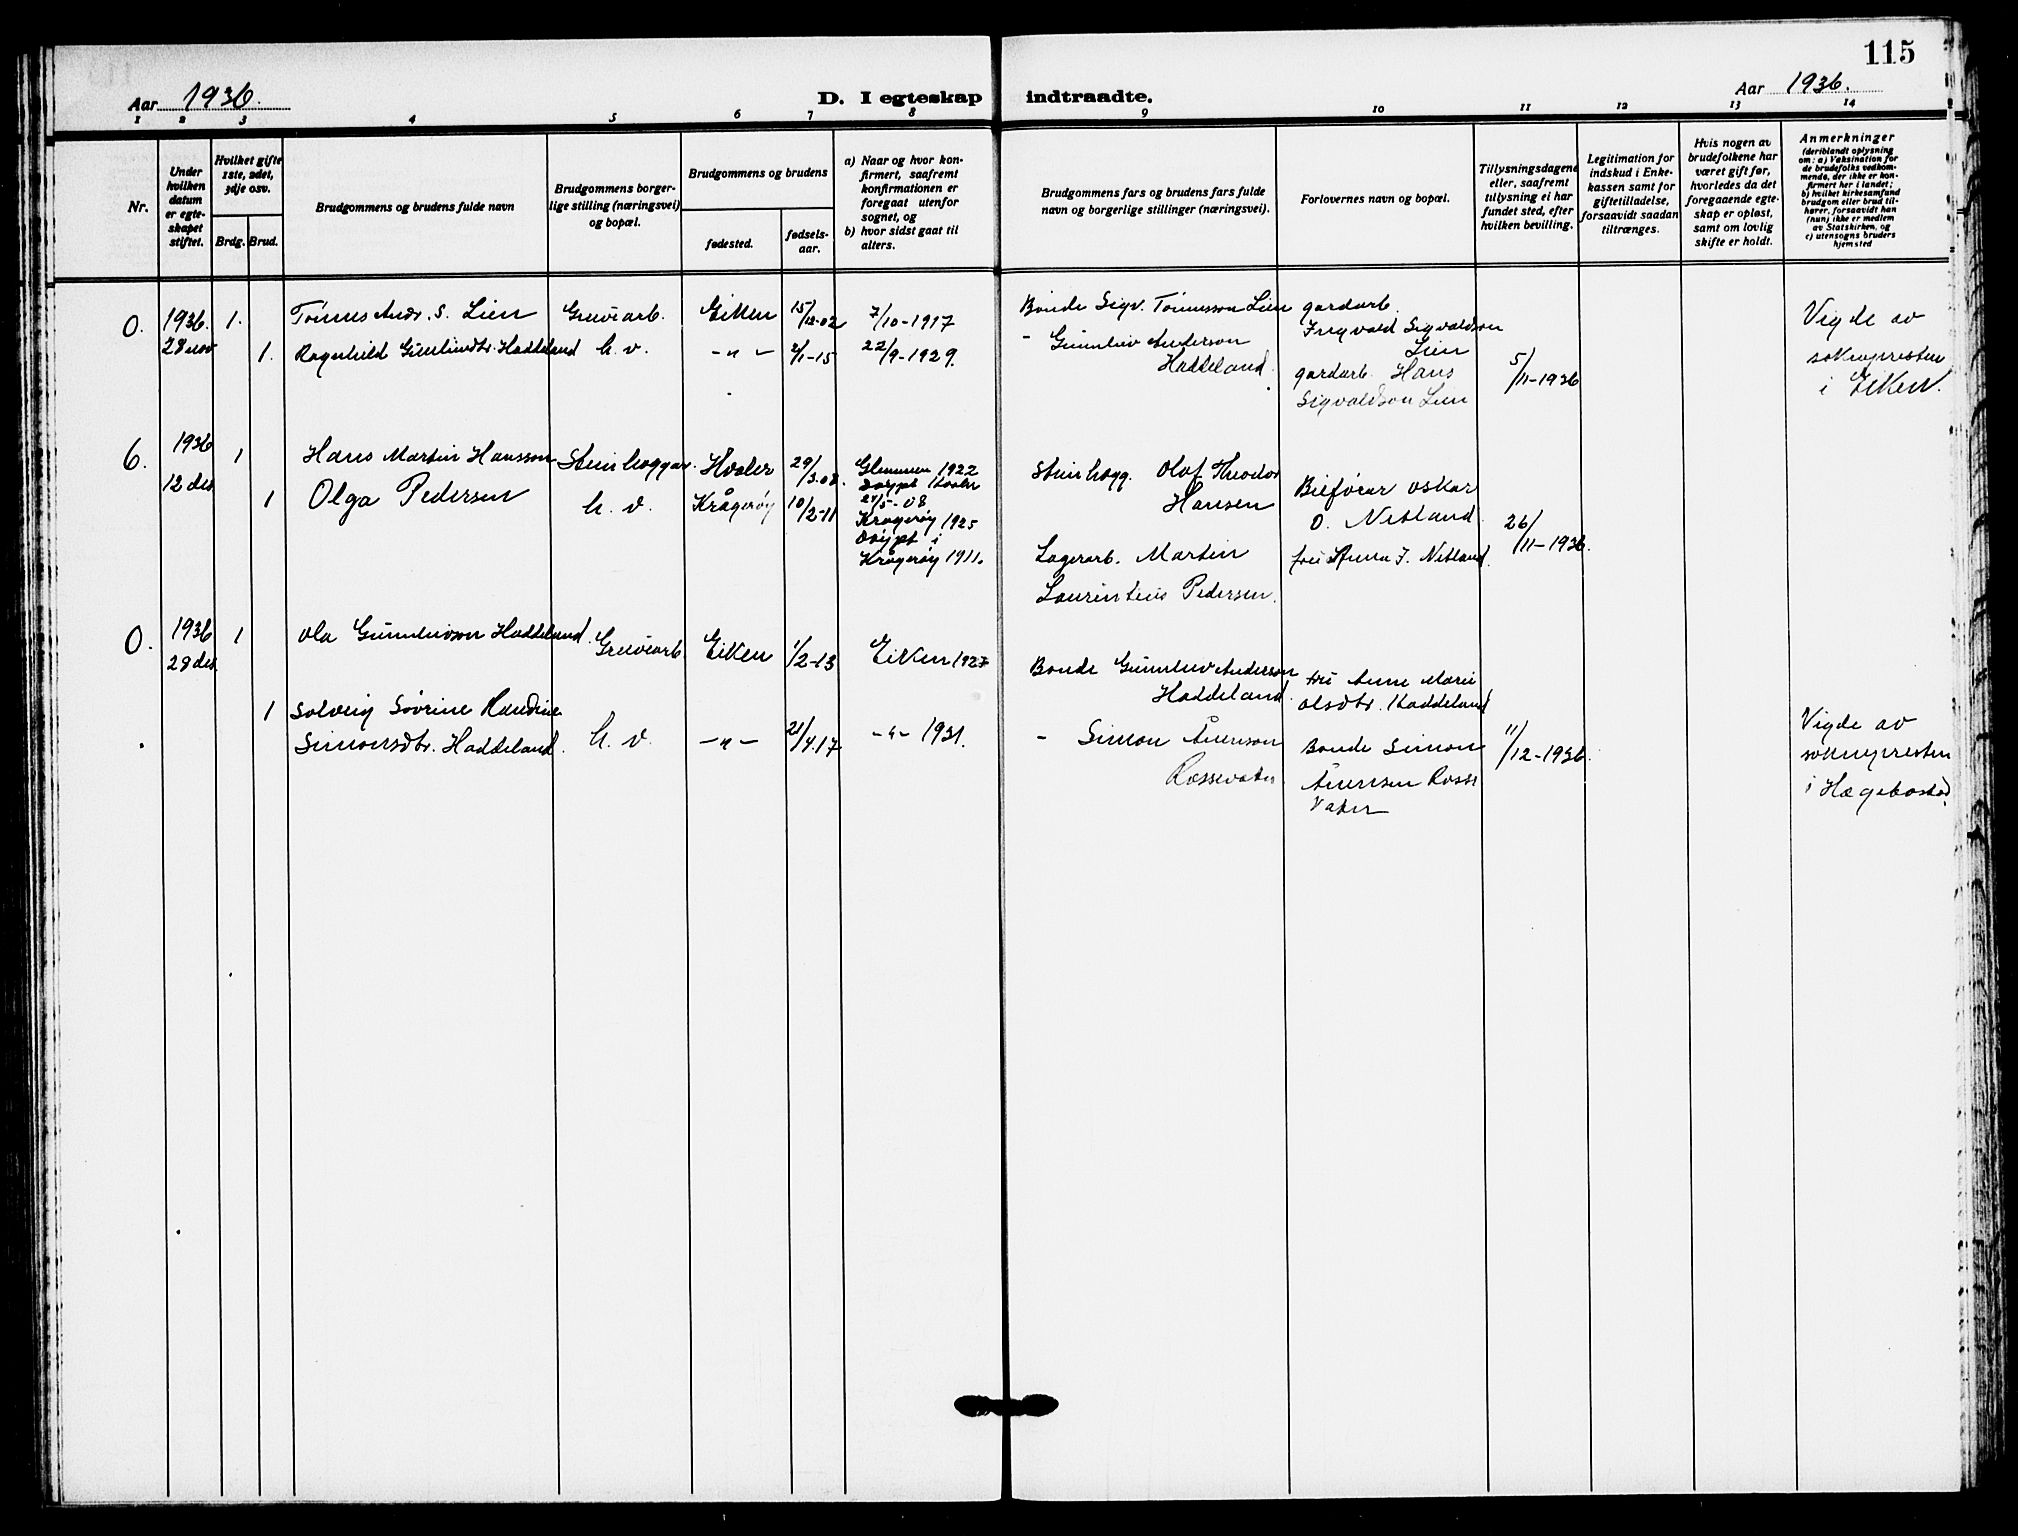 115
Aar 1936.
D. I egteskap indtraadte.
Aar 1936.
1 2 3 4 5 6 7 8 9 10 11 12 13 14
Nr.
Under hvilken datum er egteskapet stiftet.
Hvilket gifte 1ste, 2det, 3dje osv.
Brdg. Brud.
Brudgommens og brudens fulde navn
Brudgommens borgerlige stilling (næringsvei) og bopæl.
Brudgommens og brudens
fødested.
fødselsaar.
a) Naar og hvor konfirmert, saafremt konfirmationen er foregaat utenfor sognet, og
b) hvor sidst gaat til alters.
Brudgommens fars og brudens fars fulde navn og borgerlige stillinger (næringsvei).
Forlovernes navn og bopæl.
Tillysningsdagene eller, saafremt tillysning ei har fundet sted, efter hvilken bevilling.
Legitimation for indskud i Enkekassen samt for giftetilladelse, forsaavidt saadan tiltrænges.
Hvis nogen av brudefolkene har været gift før, hvorledes da det foregaaende egteskap er opløst, samt om lovlig skifte er holdt.
Anmerkninger
(deriblandt oplysning om: a) Vaksination for de brudefolks vedkommende, der ikke er konfirmert her i landet; b) hvilket kirkesamfund brudgom eller brud tilhører, forsaavidt han (hun) ikke er medlem av Statskirken, og c) utensogns bruders hjemsted
0. 1936. 28 nov 1. Tønnes Andr. S. Lien Gruvearb. Eiken 15/12-02 7/10-1917
1. Ragnhild Gunleivdtr. Haddeland h. v. -"- 2/1-15 22/9-1929.
Bonde Sigv. Tønnesson Lien
- Gunnleiv Anderson
Haddeland.
gardarb.
Ingvald Sigvaldson
Lien
gardarb. Hans
Sigvaldson Lien
5/11-1936
Vigde av
soknepresten
i Eiken.
6. 1936 12 des 1 Hans Martin Hansson Steinhoggar. Hvaler 29/3.08.
Glemmen 1922
Døypt Hvaler
27/5-08
1 Olga Pedersen h. v. Krågerøy 10/2-11
Krågerøy 1925
Døypt i
Krågerøy 1911.
Steinhogg. Olof Theodor
Hansen
Lagerarb. Martin
Laurentius Pedersen.
Bilførar Oskar
O. Netland
frú Anna J. Netland.
26/11-1936.
0. 1936 28 des. 1 Ola Gunnleivson Haddeland. Gruvearb Eiken 1/2-13 Eiken 1927
1 Solveig Søvrine Randine
Simonsdtr. Haddeland. h. v. -"- 21/4.17 -"- 1931.
Bonde Gunnleiv Anderson
Haddeland.
- Simon Ånenson
Rossevatn.
frú Anne Marie
Olsdtr. Haddeland
Bonde Simon
Ånensen Rosse
vatn
11/12-1936.
Vigde av
soknepresten
i Hægebostad.